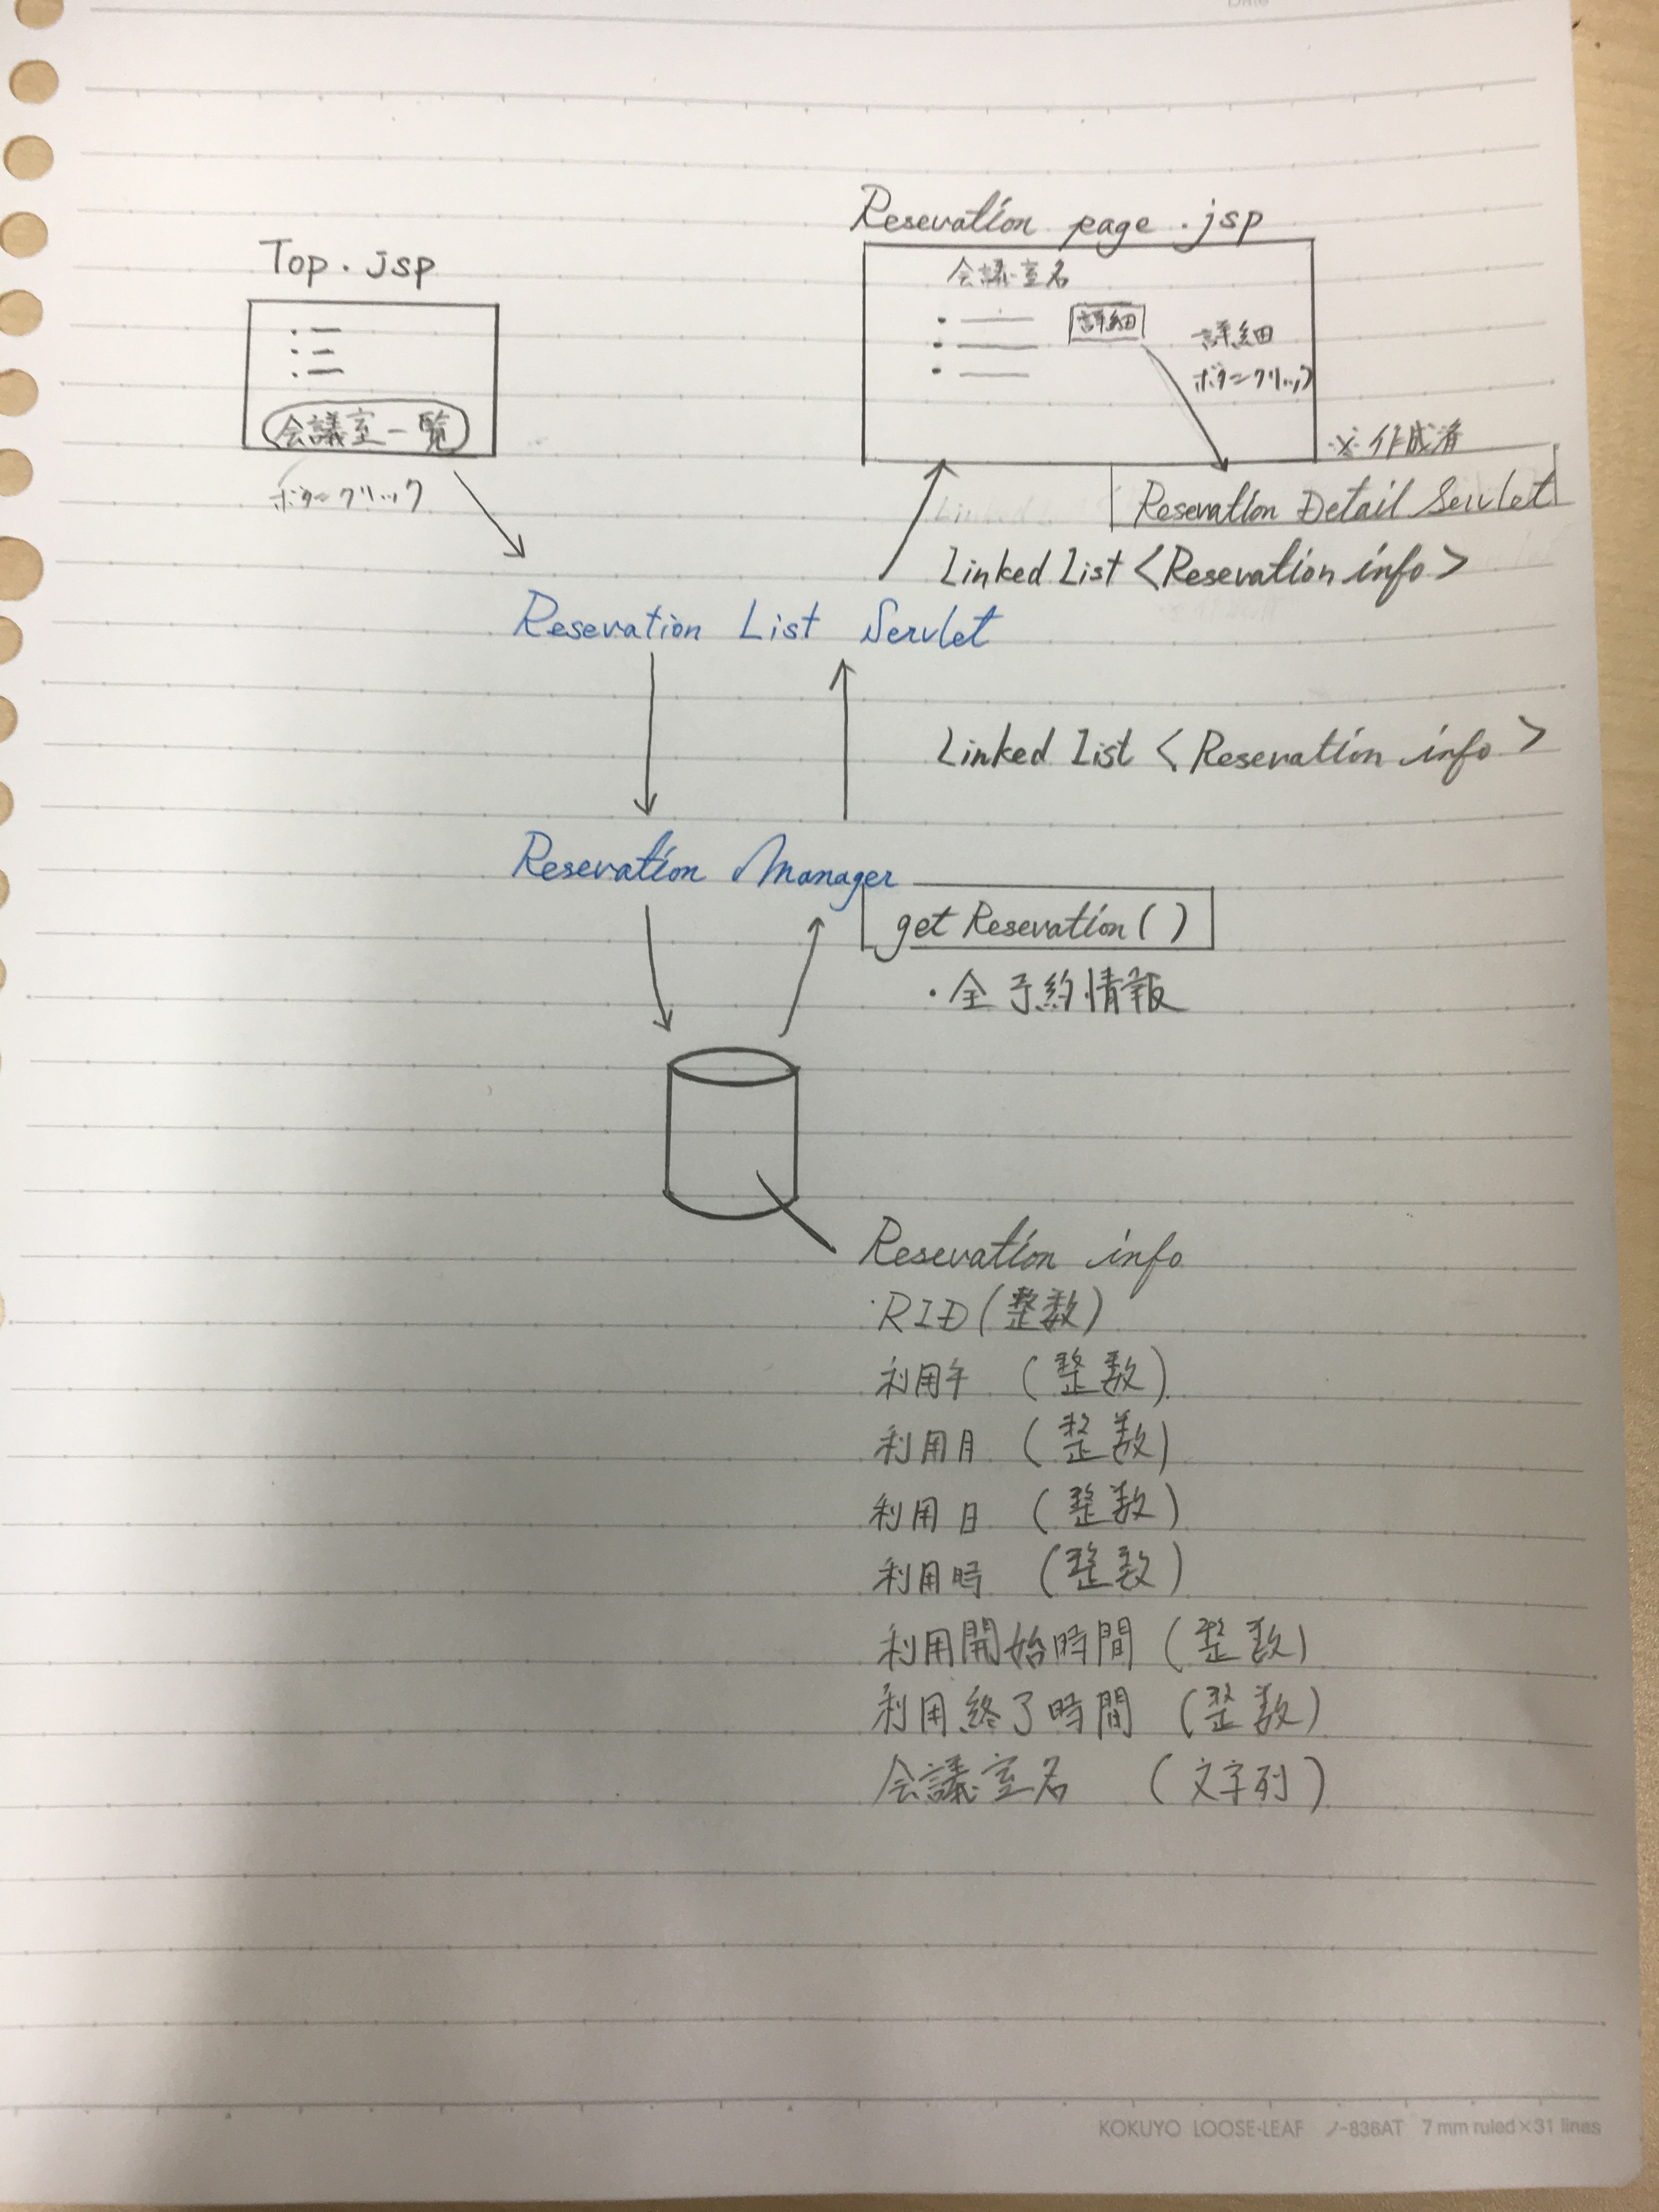 Top.jsp
会議室一覧
ボタンクリック
Resevation page.jsp
会議室名
詳細
詳細
ボタンクリック
※作成済
Resevation Detail Servlet
Linked List <Resevation info>
Resevation List Servlet
Linked List <Resevation info>
Resevation Manager
get Resevation()
・全予約情報
Resevation info
・RID(整数)
利用年 (整数)
利用月 (整数)
利用日 (整数)
利用時 (整数)
利用開始時間 (整数)
利用終了時間 (整数)
会議室名 (文字列)
KOKUYO LOOSE-LEAF ノ-836AT 7mm ruled×31 lines